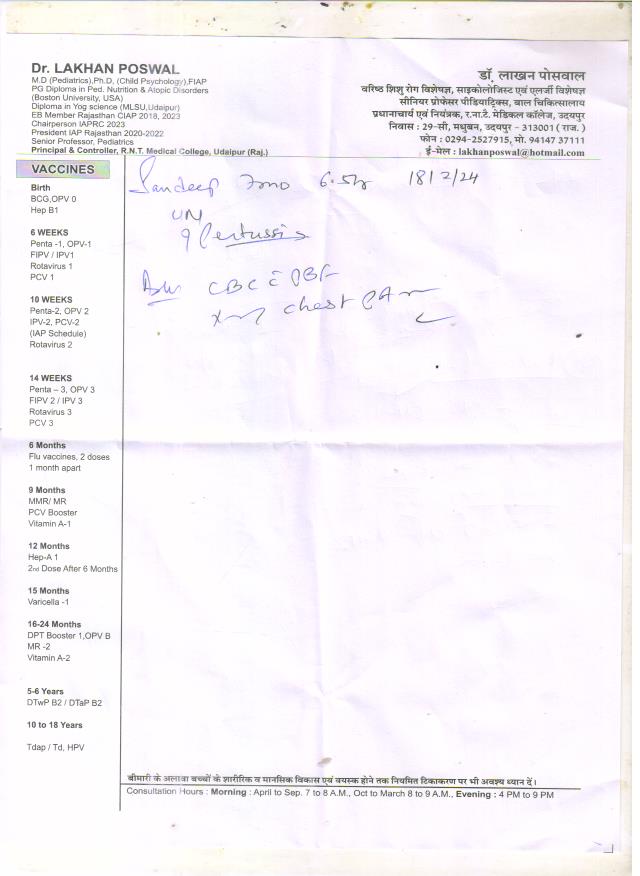 Dr. LAKHAN POSWAL
M.D (Pediatrics),Ph.D, (Child Psychology),FIAP
PG Diploma in Ped. Nutrition & Atopic Disorders
(Boston University, USA)
Diploma in Yog science (MLSU,Udaipur)
EB Member Rajasthan CIAP 2018, 2023
Chairperson IAPRC 2023
President IAP Rajasthan 2020-2022
Senior Professor, Pediatrics
Principal & Controller, R.N.T. Medical College, Udaipur (Raj.)
डॉ. लाखन पोसवाल
वरिष्ठ शिशु रोग विशेषज्ञ, साइकोलोजिस्ट एवं एलर्जी विशेषज्ञ
सीनियर प्रोफेसर पीडियाट्रिक्स, बाल चिकित्सालय
प्रधानाचार्य एवं नियंत्रक, र.ना.टै. मेडिकल कॉलेज, उदयपुर
निवास : 29-सी, मधुबन, उदयपुर - 313001 ( राज. )
फोन : 0294-2527915, मो. 94147 37111
ई-मेल : lakhanposwal@hotmail.com
VACCINES
Birth
BCG,OPV 0
Hep B1
6 WEEKS
Penta -1, OPV-1
FIPV / IPV1
Rotavirus 1
PCV 1
10 WEEKS
Penta-2, OPV 2
IPV-2, PCV-2
(IAP Schedule)
Rotavirus 2
14 WEEKS
Penta – 3, OPV 3
FIPV 2 / IPV 3
Rotavirus 3
PCV 3
6 Months
Flu vaccines, 2 doses
1 month apart
9 Months
MMR/ MR
PCV Booster
Vitamin A-1
12 Months
Hep-A 1
2nd Dose After 6 Months
15 Months
Varicella -1
16-24 Months
DPT Booster 1,OPV B
MR -2
Vitamin A-2
5-6 Years
DTwP B2 / DTaP B2
10 to 18 Years
Tdap / Td, HPV
Sandeep 7mo 18/2/24
? Pertussis
CBC c̄ PBF
chest PA
बीमारी के अलावा बच्चों के शारीरिक व मानसिक विकास एवं वयस्क होने तक नियमित टिकाकरण पर भी अवश्य ध्यान दें।
Consultation Hours : Morning : April to Sep. 7 to 8 A.M., Oct to March 8 to 9 A.M., Evening : 4 PM to 9 PM